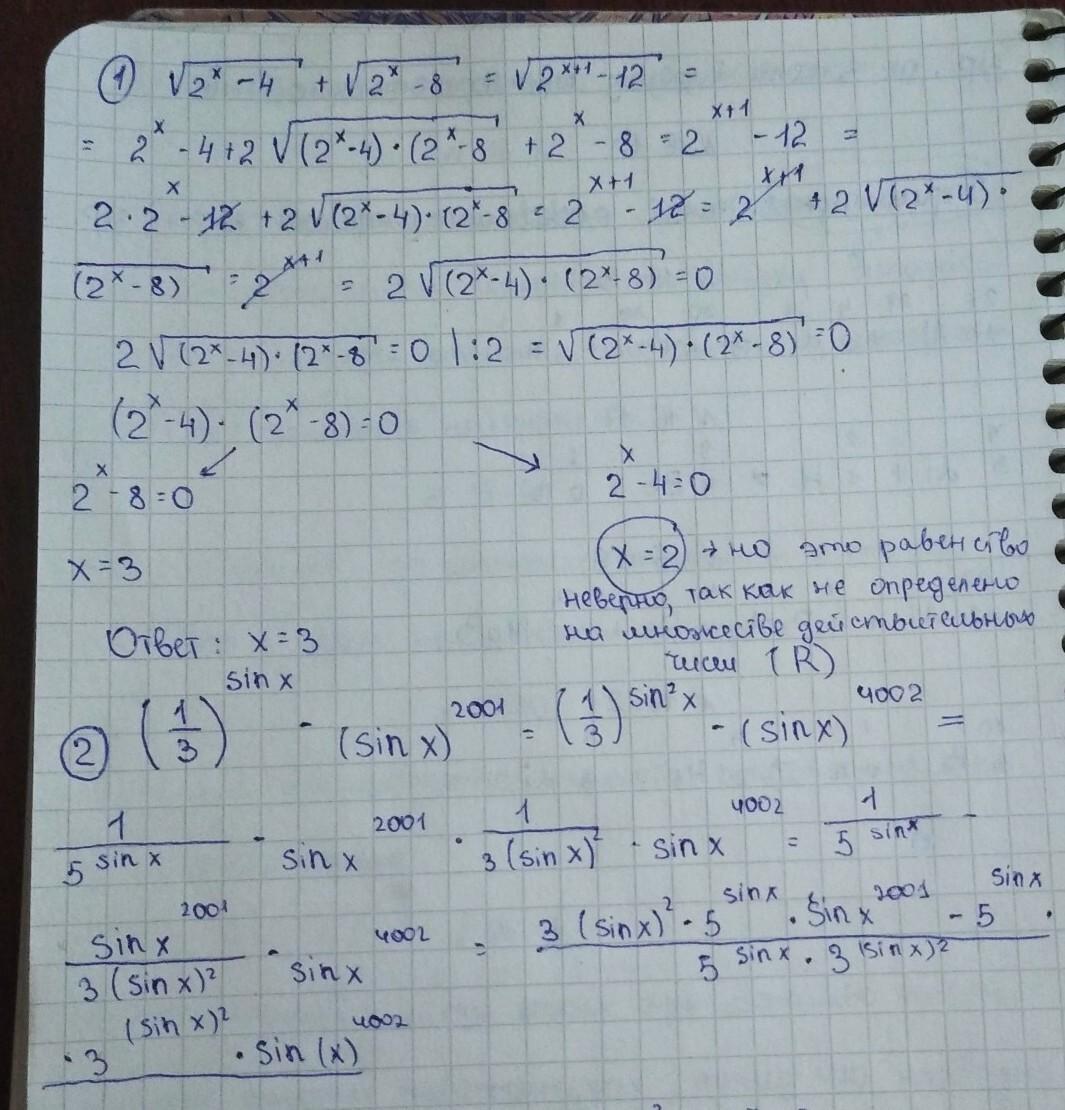 ① √(2^x - 4) + √(2^x - 8) = √(2^(x+1) - 12) =
= 2^x - 4 + 2√((2^x - 4)·(2^x - 8 + 2^x - 8 = 2^(x+1) - 12 =
2·2^x - 12 + 2√((2^x - 4)·(2^x - 8 = 2^(x+1) - 12 = 2^(x+1) + 2√(2^x - 4)·
(2^x - 8) = 2^(x+1) = 2√((2^x - 4)·(2^x - 8)) = 0
2√((2^x - 4)·(2^x - 8 = 0 | :2 = √((2^x - 4)·(2^x - 8)) = 0
(2^x - 4)·(2^x - 8) = 0
2^x - 8 = 0 2^x - 4 = 0
x = 3
x = 2 → но это равенство
неверно, так как не определено
на множестве действительных
чисел (R)
Ответ: x = 3
② (1/3)^(sin x) - (sin x)^2001 = (1/3)^(sin² x) - (sin x)^4002 =
1/5^(sin x) - sin x^2001 · 1/3(sin x)^2 · sin x^4002 = 1/5^(sin x) -
sin x^2001/3(sin x)^2 - sin x^4002 = 3(sin x)^2 - 5^(sin x) · sin x^2001 - 5^(sin x) · / 5^(sin x) · 3^(sin x)^2
· 3^(sin x)^2 · sin(x)^4002